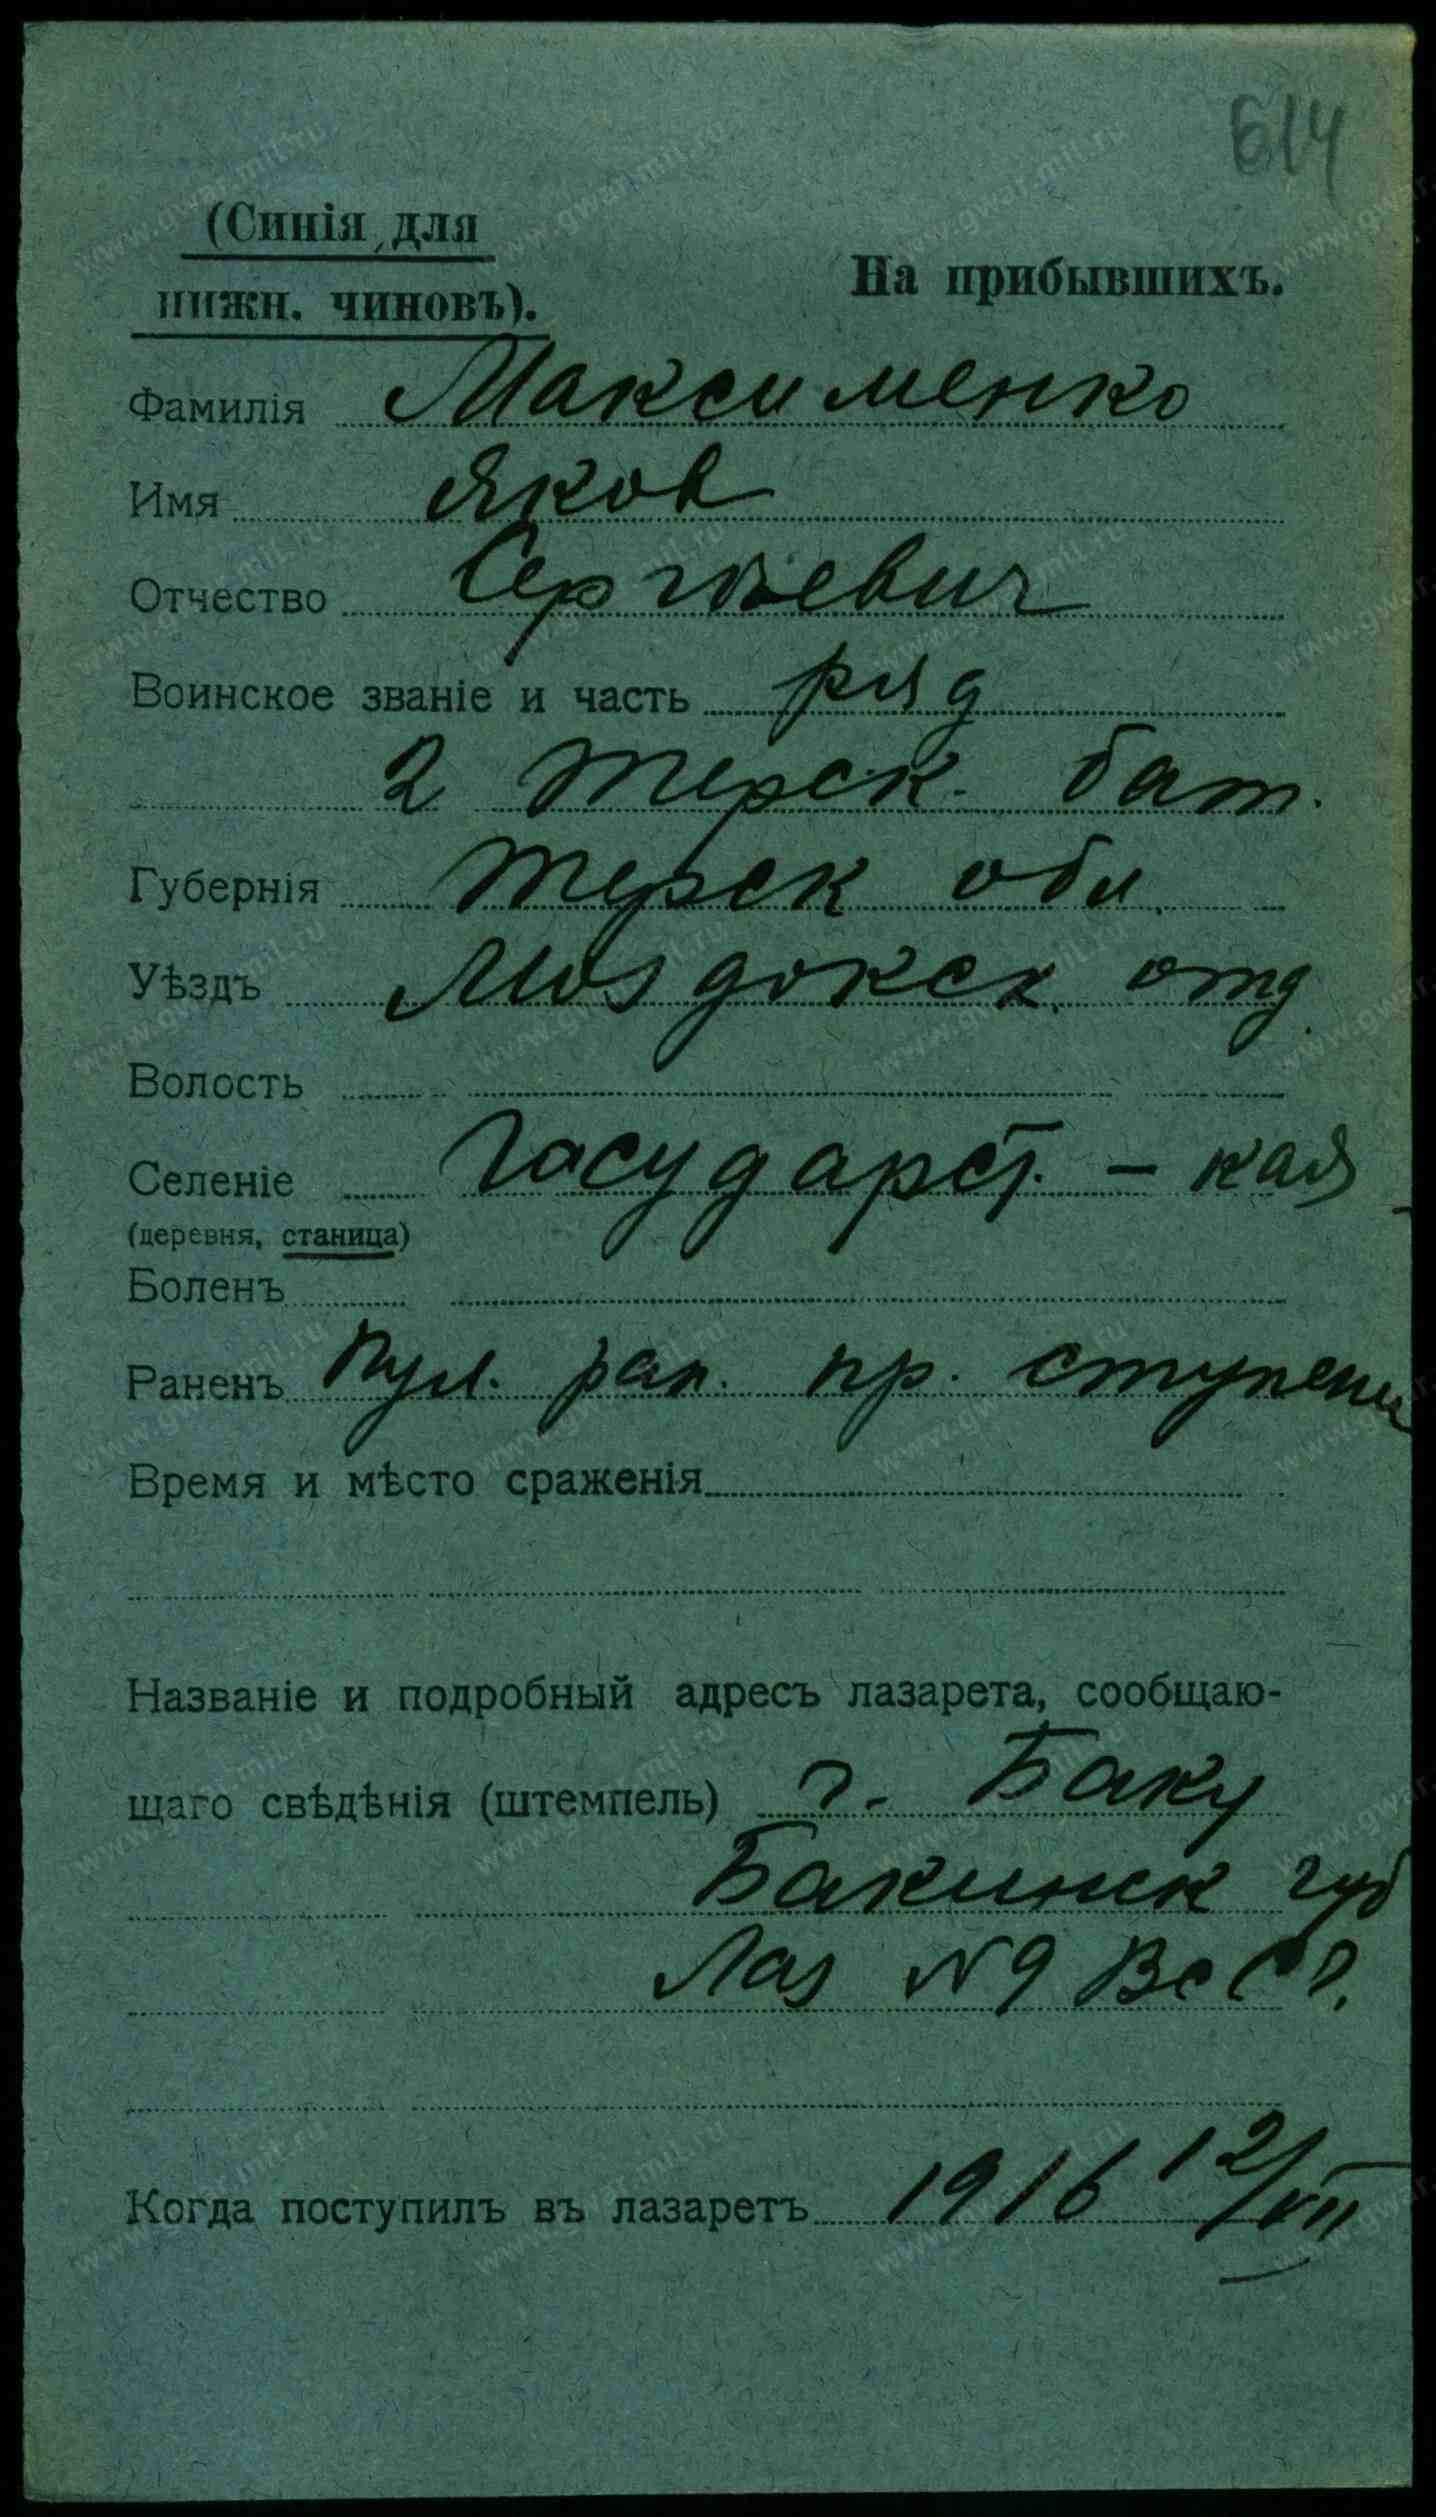 614
(Синія для
нижн. чиновъ).
На прибывшихъ.
Фамилія Максименко
Имя Яков
Отчество Сергѣевич
Воинское званіе и часть ряд
2 Терск. бат.
Губернія Терск обл.
Уѣздъ Моздокск. отд.
Волость
Селеніе Государст. - кая
(деревня, станица)
Боленъ
Раненъ Пул. ран. пр. ступени
Время и мѣсто сраженія
Названіе и подробный адресъ лазарета, сообщаю-
щаго свѣдѣнія (штемпель) г. Баку
Бакинск губ
Лаз N9 ВсСГ.
Когда поступилъ въ лазаретъ 1916 12/VII
www.gwar.mil.ru